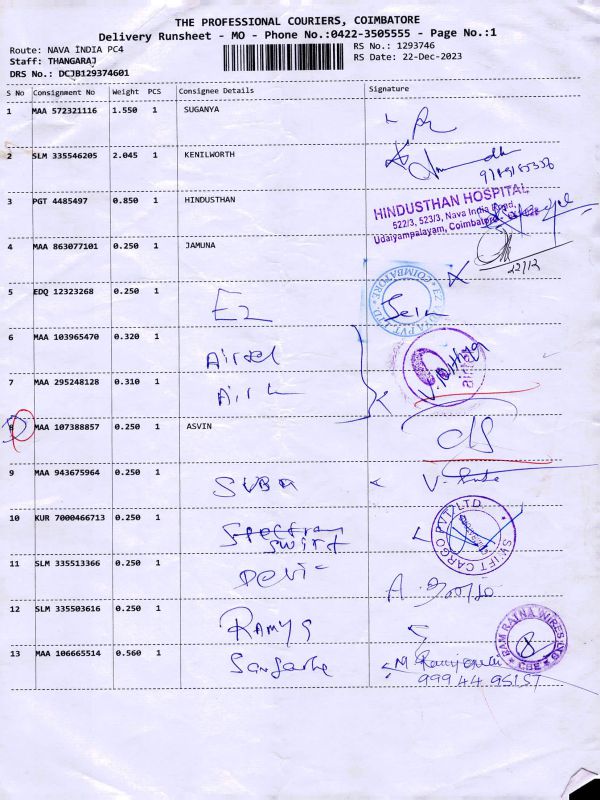 THE PROFESSIONAL COURIERS, COIMBATORE
Delivery Runsheet - MO - Phone No.:0422-3505555 - Page No.:1
Route: NAVA INDIA PC4 RS No.: 1293746
Staff: THANGARAJ RS Date: 22-Dec-2023
DRS No.: DCJB129374601
S No Consignment No Weight PCS Consignee Details Signature
1 MAA 572321116 1.550 1 SUGANYA
2 SLM 335546205 2.045 1 KENILWORTH
3 PGT 4485497 0.850 1 HINDUSTHAN
HINDUSTHAN HOSPITAL
522/3, 523/3, Nava India Road,
Udaiyampalayam, Coimbatore
4 MAA 863077101 0.250 1 JAMUNA
22/12
5 EDQ 12323268 0.250 1 EZ
COIMBATORE
6 MAA 103965470 0.320 1 Airtel
7 MAA 295248128 0.310 1
V. Nithya
airtel
8 MAA 107388857 0.250 1 ASVIN
9 MAA 943675964 0.250 1 SUBA
10 KUR 7000466713 0.250 1 Spectrum
swift
SWIFT CARGO PVT LTD
11 SLM 335513366 0.250 1
12 SLM 335503616 0.250 1 RAMYS
RAM RATNA WIRES
CBE
13 MAA 106665514 0.560 1
999 44 95157